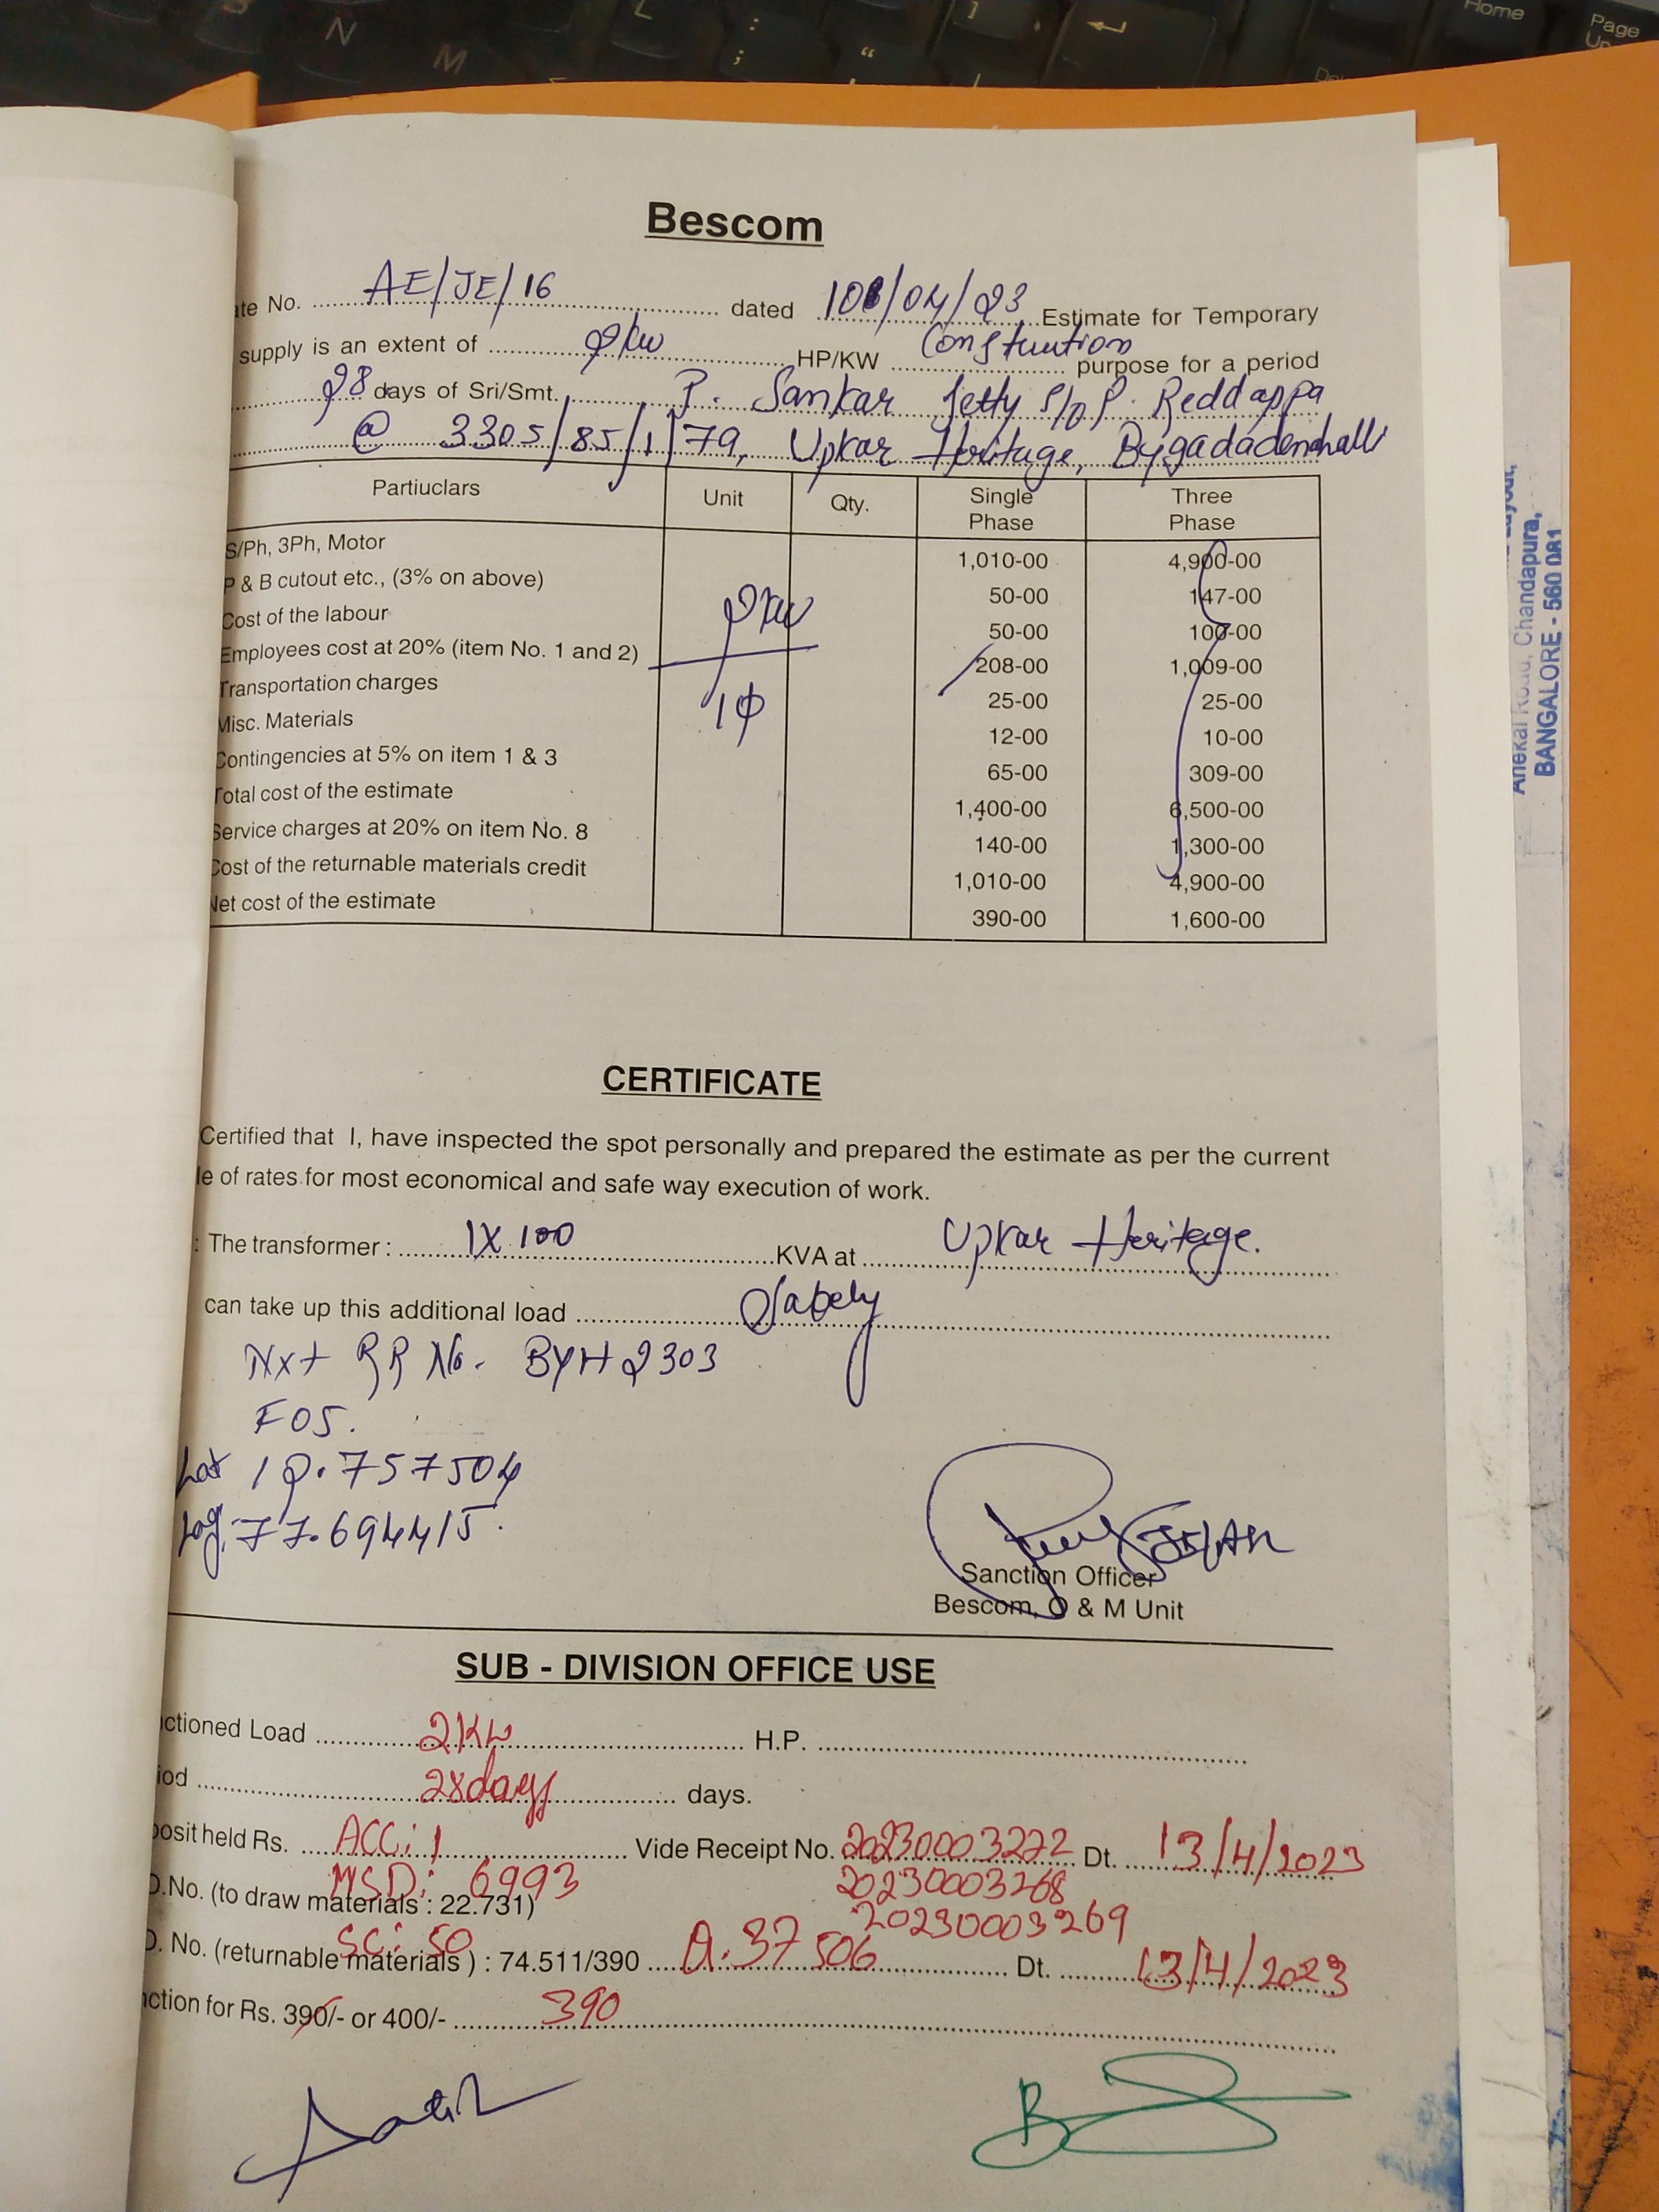 Bescom
te No. AE/JE/16 dated 10/04/23 Estimate for Temporary
supply is an extent of 2kw HP/KW Constuution purpose for a period
28 days of Sri/Smt. P. Sankar Jetty S/o P. Reddappa
@ 3305/85/1/79, Upkar Heritage, Bygadadenahalli
Partiuclars Unit Qty. Single Phase Three Phase
S/Ph, 3Ph, Motor 1,010-00 4,900-00
P & B cutout etc., (3% on above) 50-00 147-00
2kw
Cost of the labour 50-00 100-00
Employees cost at 20% (item No. 1 and 2) 208-00 1,009-00
Transportation charges 25-00 25-00
1φ
Misc. Materials 12-00 10-00
Contingencies at 5% on item 1 & 3 65-00 309-00
Total cost of the estimate 1,400-00 6,500-00
Service charges at 20% on item No. 8 140-00 1,300-00
Cost of the returnable materials credit 1,010-00 4,900-00
Net cost of the estimate 390-00 1,600-00
CERTIFICATE
Certified that I, have inspected the spot personally and prepared the estimate as per the current
le of rates for most economical and safe way execution of work.
: The transformer : 1X100 KVA at Upkar Heritage.
can take up this additional load Safely
Nxt RR No. BYH2303
F05.
Lat 12.757504
Log: 77.694415.
Sanction Officer
Bescom, O & M Unit
SUB - DIVISION OFFICE USE
ctioned Load 2KW H.P.
iod 28days days.
posit held Rs. ACC: 1 Vide Receipt No. 20230003272 Dt. 13/4/2023
MSD: 6993 20230003268
O.No. (to draw materials : 22.731)
SC: 50 20230003269
O. No. (returnable materials ) : 74.511/390 A. 37506 Dt. 13/4/2023
nction for Rs. 390/- or 400/- 390
Layout,
Anekal Road, Chandapura,
BANGALORE - 560 081
N
M
L
:
;
"
]
Home
Page
Up